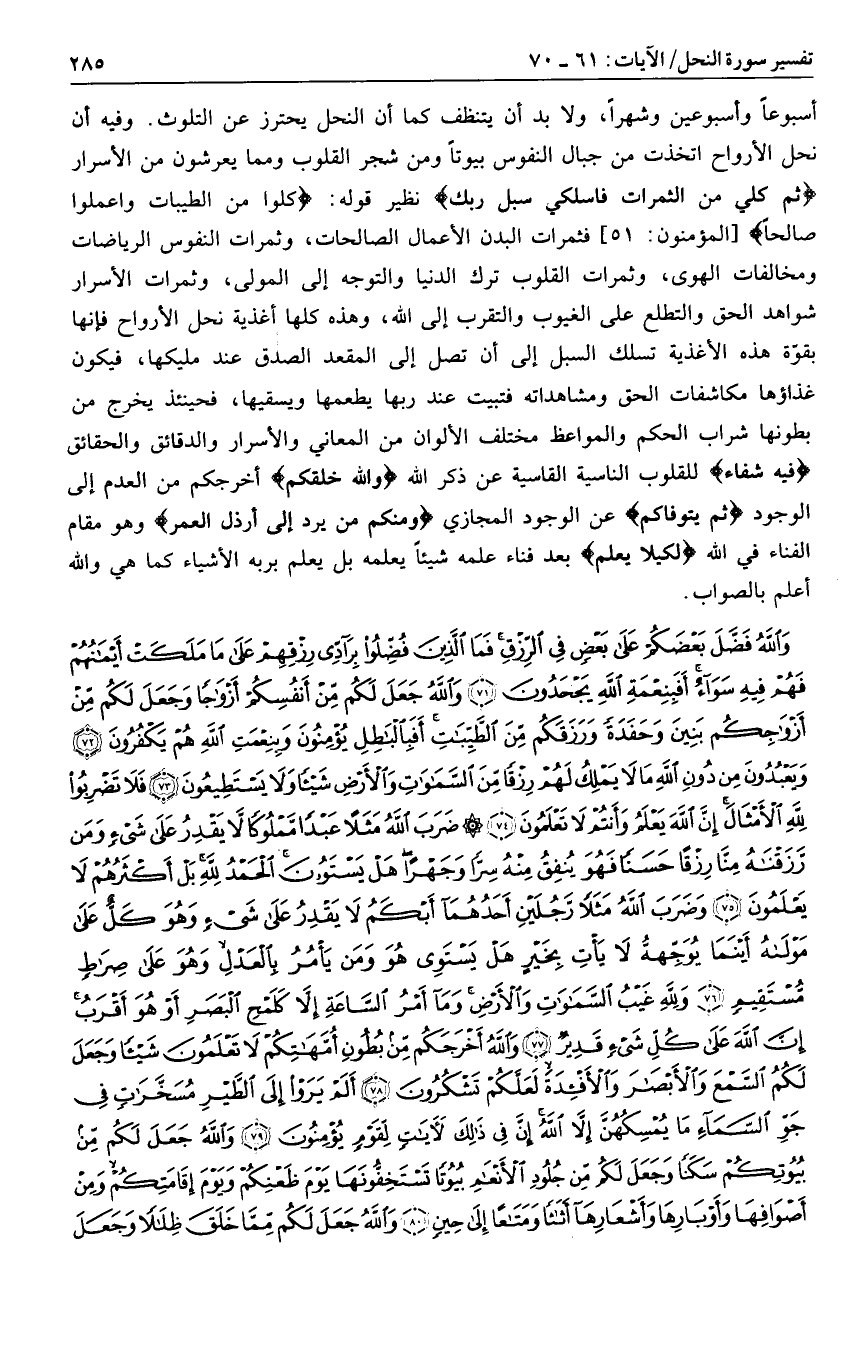 تفسير سورة النحل/ الآيات: ٦١ ـ ٧٠ ٢٨٥
أسبوعاً وأسبوعين وشهراً، ولا بد أن يتنظف كما أن النحل يحترز عن التلوث. وفيه أن
نحل الأرواح اتخذت من جبال النفوس بيوتاً ومن شجر القلوب ومما يعرشون من الأسرار
﴿ثم كلي من الثمرات فاسلكي سبل ربك﴾ نظير قوله: ﴿كلوا من الطيبات واعملوا
صالحاً﴾ [المؤمنون: ٥١] فثمرات البدن الأعمال الصالحات، وثمرات النفوس الرياضات
ومخالفات الهوى، وثمرات القلوب ترك الدنيا والتوجه إلى المولى، وثمرات الأسرار
شواهد الحق والتطلع على الغيوب والتقرب إلى الله، وهذه كلها أغذية نحل الأرواح فإنها
بقوّة هذه الأغذية تسلك السبل إلى أن تصل إلى المقعد الصدق عند مليكها، فيكون
غذاؤها مكاشفات الحق ومشاهداته فتبيت عند ربها يطعمها ويسقيها، فحينئذ يخرج من
بطونها شراب الحكم والمواعظ مختلف الألوان من المعاني والأسرار والدقائق والحقائق
﴿فيه شفاء﴾ للقلوب الناسية القاسية عن ذكر الله ﴿والله خلقكم﴾ أخرجكم من العدم إلى
الوجود ﴿ثم يتوفاكم﴾ عن الوجود المجازي ﴿ومنكم من يرد إلى أرذل العمر﴾ وهو مقام
الفناء في الله ﴿لكيلا يعلم﴾ بعد فناء علمه شيئاً يعلمه بل يعلم بربه الأشياء كما هي والله
أعلم بالصواب.
وَٱللَّهُ فَضَّلَ بَعْضَكُمْ عَلَىٰ بَعْضٍ فِى ٱلرِّزْقِ ۚ فَمَا ٱلَّذِينَ فُضِّلُوا۟ بِرَآدِّى رِزْقِهِمْ عَلَىٰ مَا مَلَكَتْ أَيْمَـٰنُهُمْ
فَهُمْ فِيهِ سَوَآءٌ ۚ أَفَبِنِعْمَةِ ٱللَّهِ يَجْحَدُونَ ﴿٧١﴾ وَٱللَّهُ جَعَلَ لَكُم مِّنْ أَنفُسِكُمْ أَزْوَٰجًا وَجَعَلَ لَكُم مِّنْ
أَزْوَٰجِكُم بَنِينَ وَحَفَدَةً وَرَزَقَكُم مِّنَ ٱلطَّيِّبَـٰتِ ۚ أَفَبِٱلْبَـٰطِلِ يُؤْمِنُونَ وَبِنِعْمَتِ ٱللَّهِ هُمْ يَكْفُرُونَ ﴿٧٢﴾
وَيَعْبُدُونَ مِن دُونِ ٱللَّهِ مَا لَا يَمْلِكُ لَهُمْ رِزْقًا مِّنَ ٱلسَّمَـٰوَٰتِ وَٱلْأَرْضِ شَيْـًٔا وَلَا يَسْتَطِيعُونَ ﴿٧٣﴾ فَلَا تَضْرِبُوا۟
لِلَّهِ ٱلْأَمْثَالَ ۚ إِنَّ ٱللَّهَ يَعْلَمُ وَأَنتُمْ لَا تَعْلَمُونَ ﴿٧٤﴾ ۞ ضَرَبَ ٱللَّهُ مَثَلًا عَبْدًا مَّمْلُوكًا لَّا يَقْدِرُ عَلَىٰ شَىْءٍ وَمَن
رَّزَقْنَـٰهُ مِنَّا رِزْقًا حَسَنًا فَهُوَ يُنفِقُ مِنْهُ سِرًّا وَجَهْرًا ۖ هَلْ يَسْتَوُۥنَ ۚ ٱلْحَمْدُ لِلَّهِ ۚ بَلْ أَكْثَرُهُمْ لَا
يَعْلَمُونَ ﴿٧٥﴾ وَضَرَبَ ٱللَّهُ مَثَلًا رَّجُلَيْنِ أَحَدُهُمَآ أَبْكَمُ لَا يَقْدِرُ عَلَىٰ شَىْءٍ وَهُوَ كَلٌّ عَلَىٰ
مَوْلَىٰهُ أَيْنَمَا يُوَجِّههُّ لَا يَأْتِ بِخَيْرٍ ۖ هَلْ يَسْتَوِى هُوَ وَمَن يَأْمُرُ بِٱلْعَدْلِ ۙ وَهُوَ عَلَىٰ صِرَٰطٍ
مُّسْتَقِيمٍ ﴿٧٦﴾ وَلِلَّهِ غَيْبُ ٱلسَّمَـٰوَٰتِ وَٱلْأَرْضِ ۚ وَمَآ أَمْرُ ٱلسَّاعَةِ إِلَّا كَلَمْحِ ٱلْبَصَرِ أَوْ هُوَ أَقْرَبُ ۚ
إِنَّ ٱللَّهَ عَلَىٰ كُلِّ شَىْءٍ قَدِيرٌ ﴿٧٧﴾ وَٱللَّهُ أَخْرَجَكُم مِّنۢ بُطُونِ أُمَّهَـٰتِكُمْ لَا تَعْلَمُونَ شَيْـًٔا وَجَعَلَ
لَكُمُ ٱلسَّمْعَ وَٱلْأَبْصَـٰرَ وَٱلْأَفْـِٔدَةَ ۙ لَعَلَّكُمْ تَشْكُرُونَ ﴿٧٨﴾ أَلَمْ يَرَوْا۟ إِلَى ٱلطَّيْرِ مُسَخَّرَٰتٍ فِى
جَوِّ ٱلسَّمَآءِ مَا يُمْسِكُهُنَّ إِلَّا ٱللَّهُ ۗ إِنَّ فِى ذَٰلِكَ لَـَٔايَـٰتٍ لِّقَوْمٍ يُؤْمِنُونَ ﴿٧٩﴾ وَٱللَّهُ جَعَلَ لَكُم مِّنۢ
بُيُوتِكُمْ سَكَنًا وَجَعَلَ لَكُم مِّن جُلُودِ ٱلْأَنْعَـٰمِ بُيُوتًا تَسْتَخِفُّونَهَا يَوْمَ ظَعْنِكُمْ وَيَوْمَ إِقَامَتِكُمْ ۙ وَمِنْ
أَصْوَافِهَا وَأَوْبَارِهَا وَأَشْعَارِهَآ أَثَـٰثًا وَمَتَـٰعًا إِلَىٰ حِينٍ ﴿٨٠﴾ وَٱللَّهُ جَعَلَ لَكُم مِّمَّا خَلَقَ ظِلَـٰلًا وَجَعَلَ